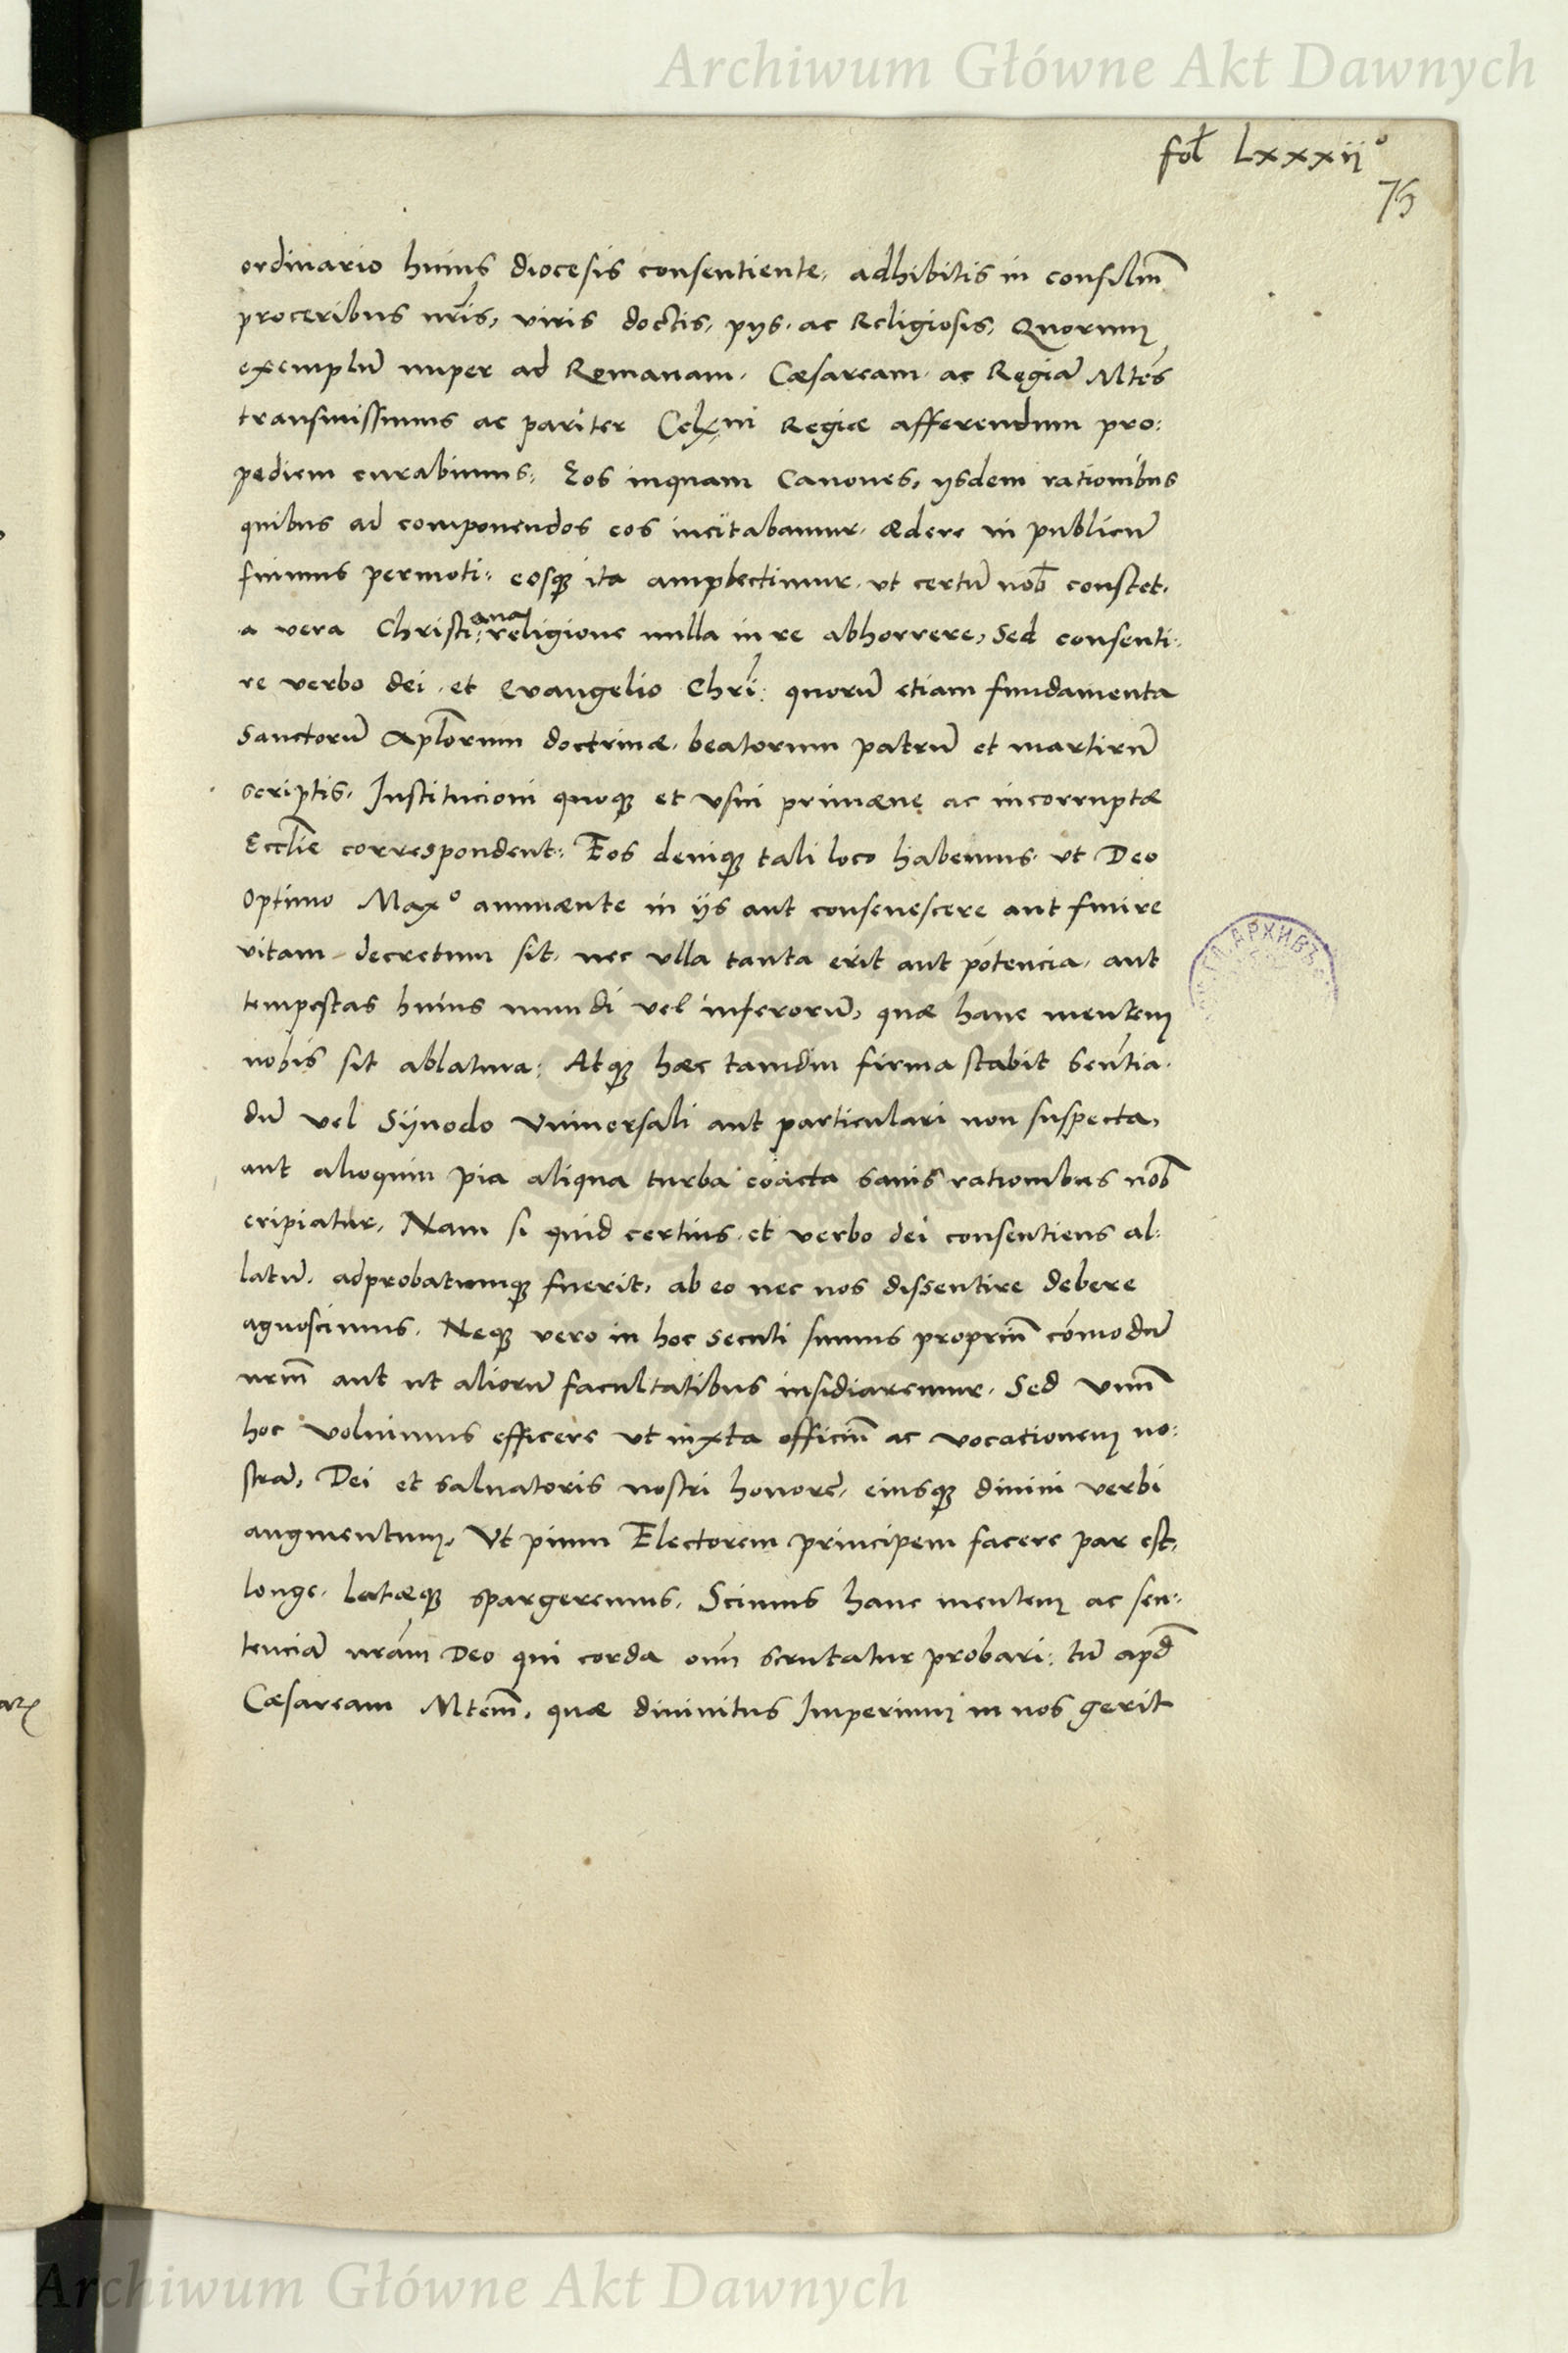 Archiwum Główne Akt Dawnych
fol Lxxxij°
75
ordinario huius diocesis consentiente, adhibitis in consiliu̅
proceribus nr̅is, viris doctis, pijs, ac Religiosis, Quorum
exemplu̅ nuper ad Romanam, Cæsaream, ac Regia̅ Mtes
transmissimus ac pariter Regiæ afferendum pro:
pediem curabimus: Eos inquam Canones, ijsdem rationibus
quibus ad componendos eos incitabamur, ædere in publicu̅
fuimus permoti: eosqꝫ ita amplectimur, ut certu̅ nob̅ constet,
a vera Christi:ana religione nulla in re abhorrere, Sed consenti:
re verbo dei, et Evangelio Chri̅: quoru̅ etiam fundamenta
Sanctoru̅ Apl̅orum doctrinæ, beatorum patru̅ et martiru̅
scriptis, Institucioni quoqꝫ et usui primæuę ac incorruptæ
Eccl̅ie correspondent: Eos deniqꝫ tali loco habemus, ut Deo
Optimo Max° annuænte in ijs aut consenescere aut finire
vitam decretum sit, nec ulla tanta erit aut potencia, aut
tempestas huius mundi vel inferoru̅, quæ hanc mentem
nobis sit ablatura: Atqꝫ hæc tamdiu firma stabit sen̅tia,
du̅ vel Synodo Vniuersali aut particulari non suspecta,
aut alioquin pia aliqua turba coacta sanis rationibus nob̅
eripiatur, Nam si quid certius, et verbo dei consentiens al:
latu̅, adprobatumqꝫ fuerit, ab eo nec nos dissentire debere
agnoscimus, Neqꝫ vero in hoc secuti sumus propriu̅ com̅odu̅
nr̅m aut ut alioru̅ facultatibus insidiaremur, Sed Vnu̅
hoc voluimus efficere ut iuxta officiu̅ ac vocationem no:
stra̅, Dei et saluatoris nostri honore̅, eiusqꝫ diuini verbi
augmentum, Vt pium Electorem principem facere par est,
longe, latæqꝫ spargeremus, Scimus hanc mentem ac sen:
tencia̅ nr̅am Deo qui corda om̅ scrutatur probari: tu̅ apd̅
Cæsaream Mtem̅, quæ diuinitus Imperium in nos gerit
АРХИВЪ
Archiwum Główne Akt Dawnych